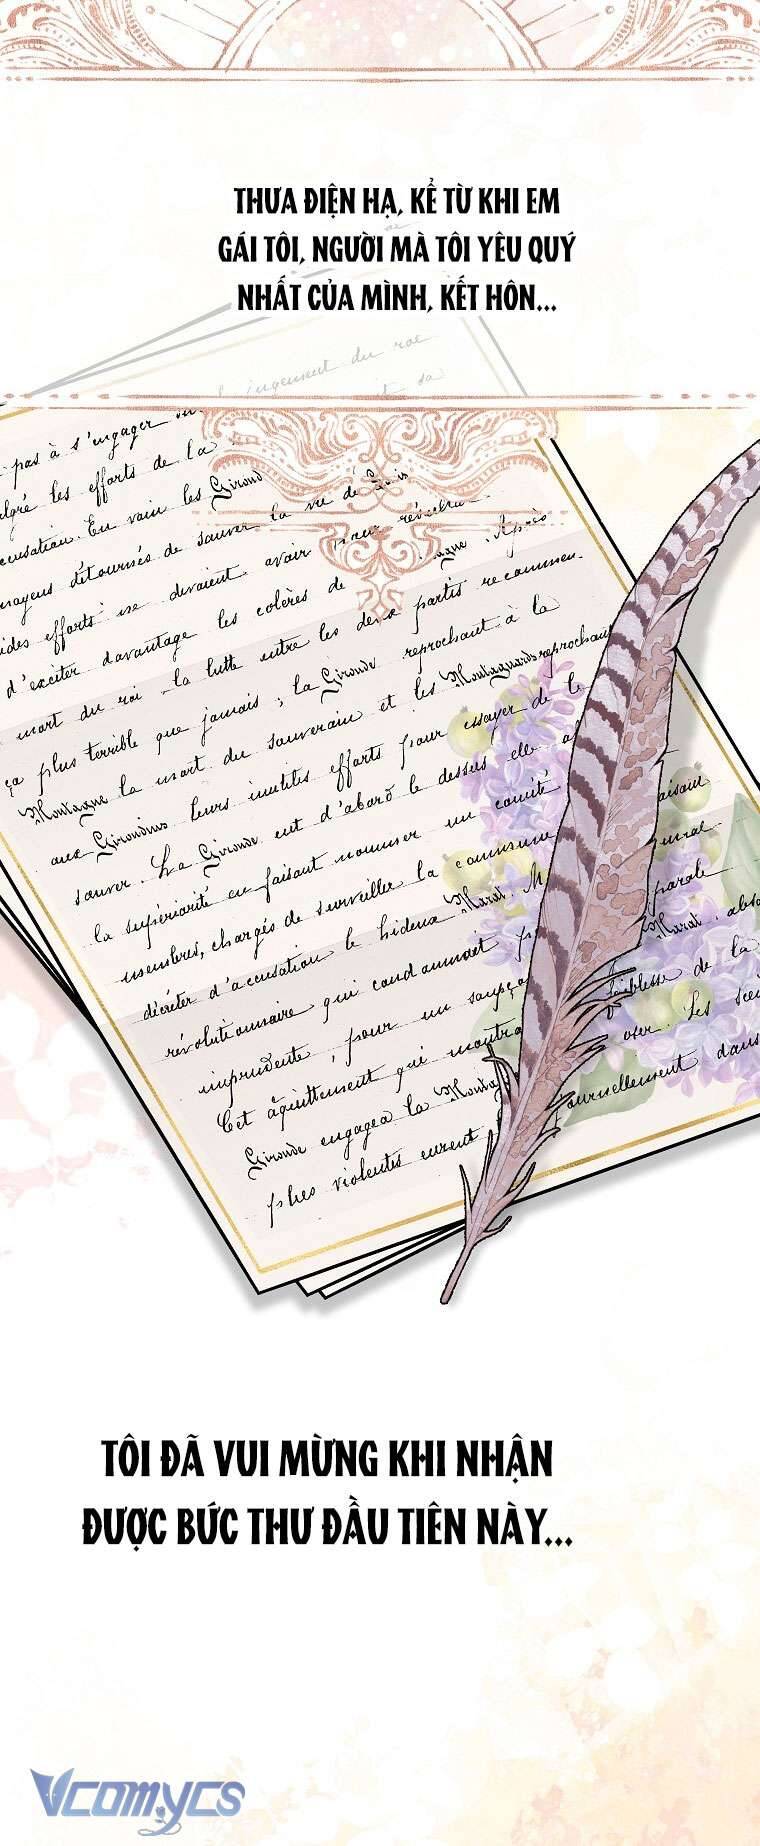 THƯA ĐIỆN HẠ, KỂ TỪ KHI EM
GÁI TÔI, NGƯỜI MÀ TÔI YÊU QUÝ
NHẤT CỦA MÌNH, KẾT HÔN...
jugement du roi
sa
pas à s'engager
malgré les efforts de la
accusation. En vain les Girond
moyens détournés de sauver la vie de Louis
efforts ne devaient avoir pour résultat
d'exciter davantage les colères de Après
mort du roi la lutte entre les deux partis recommen-
ça plus terrible que jamais ; la Gironde reprochant à la
Montagne la mort du souverain et les Montagnards reprochant
aux Girondins leurs inutiles efforts pour essayer de le
sauver. La Gironde eut d'abord le dessus elle
la supériorité en faisant nommer un comité
membres, chargés de surveiller la commune
décréter d'accusation le hideux Marat. parole
révolutionnaire qui condamnait Marat, abso
imprudente, pour un soupço faiblesse de la
Cet acquittement qui montra oser. Les
Gironde engagea la Montag journellement dans
plus violentes eurent
TÔI ĐÃ VUI MỪNG KHI NHẬN
ĐƯỢC BỨC THƯ ĐẦU TIÊN NÀY...
Vcomycs